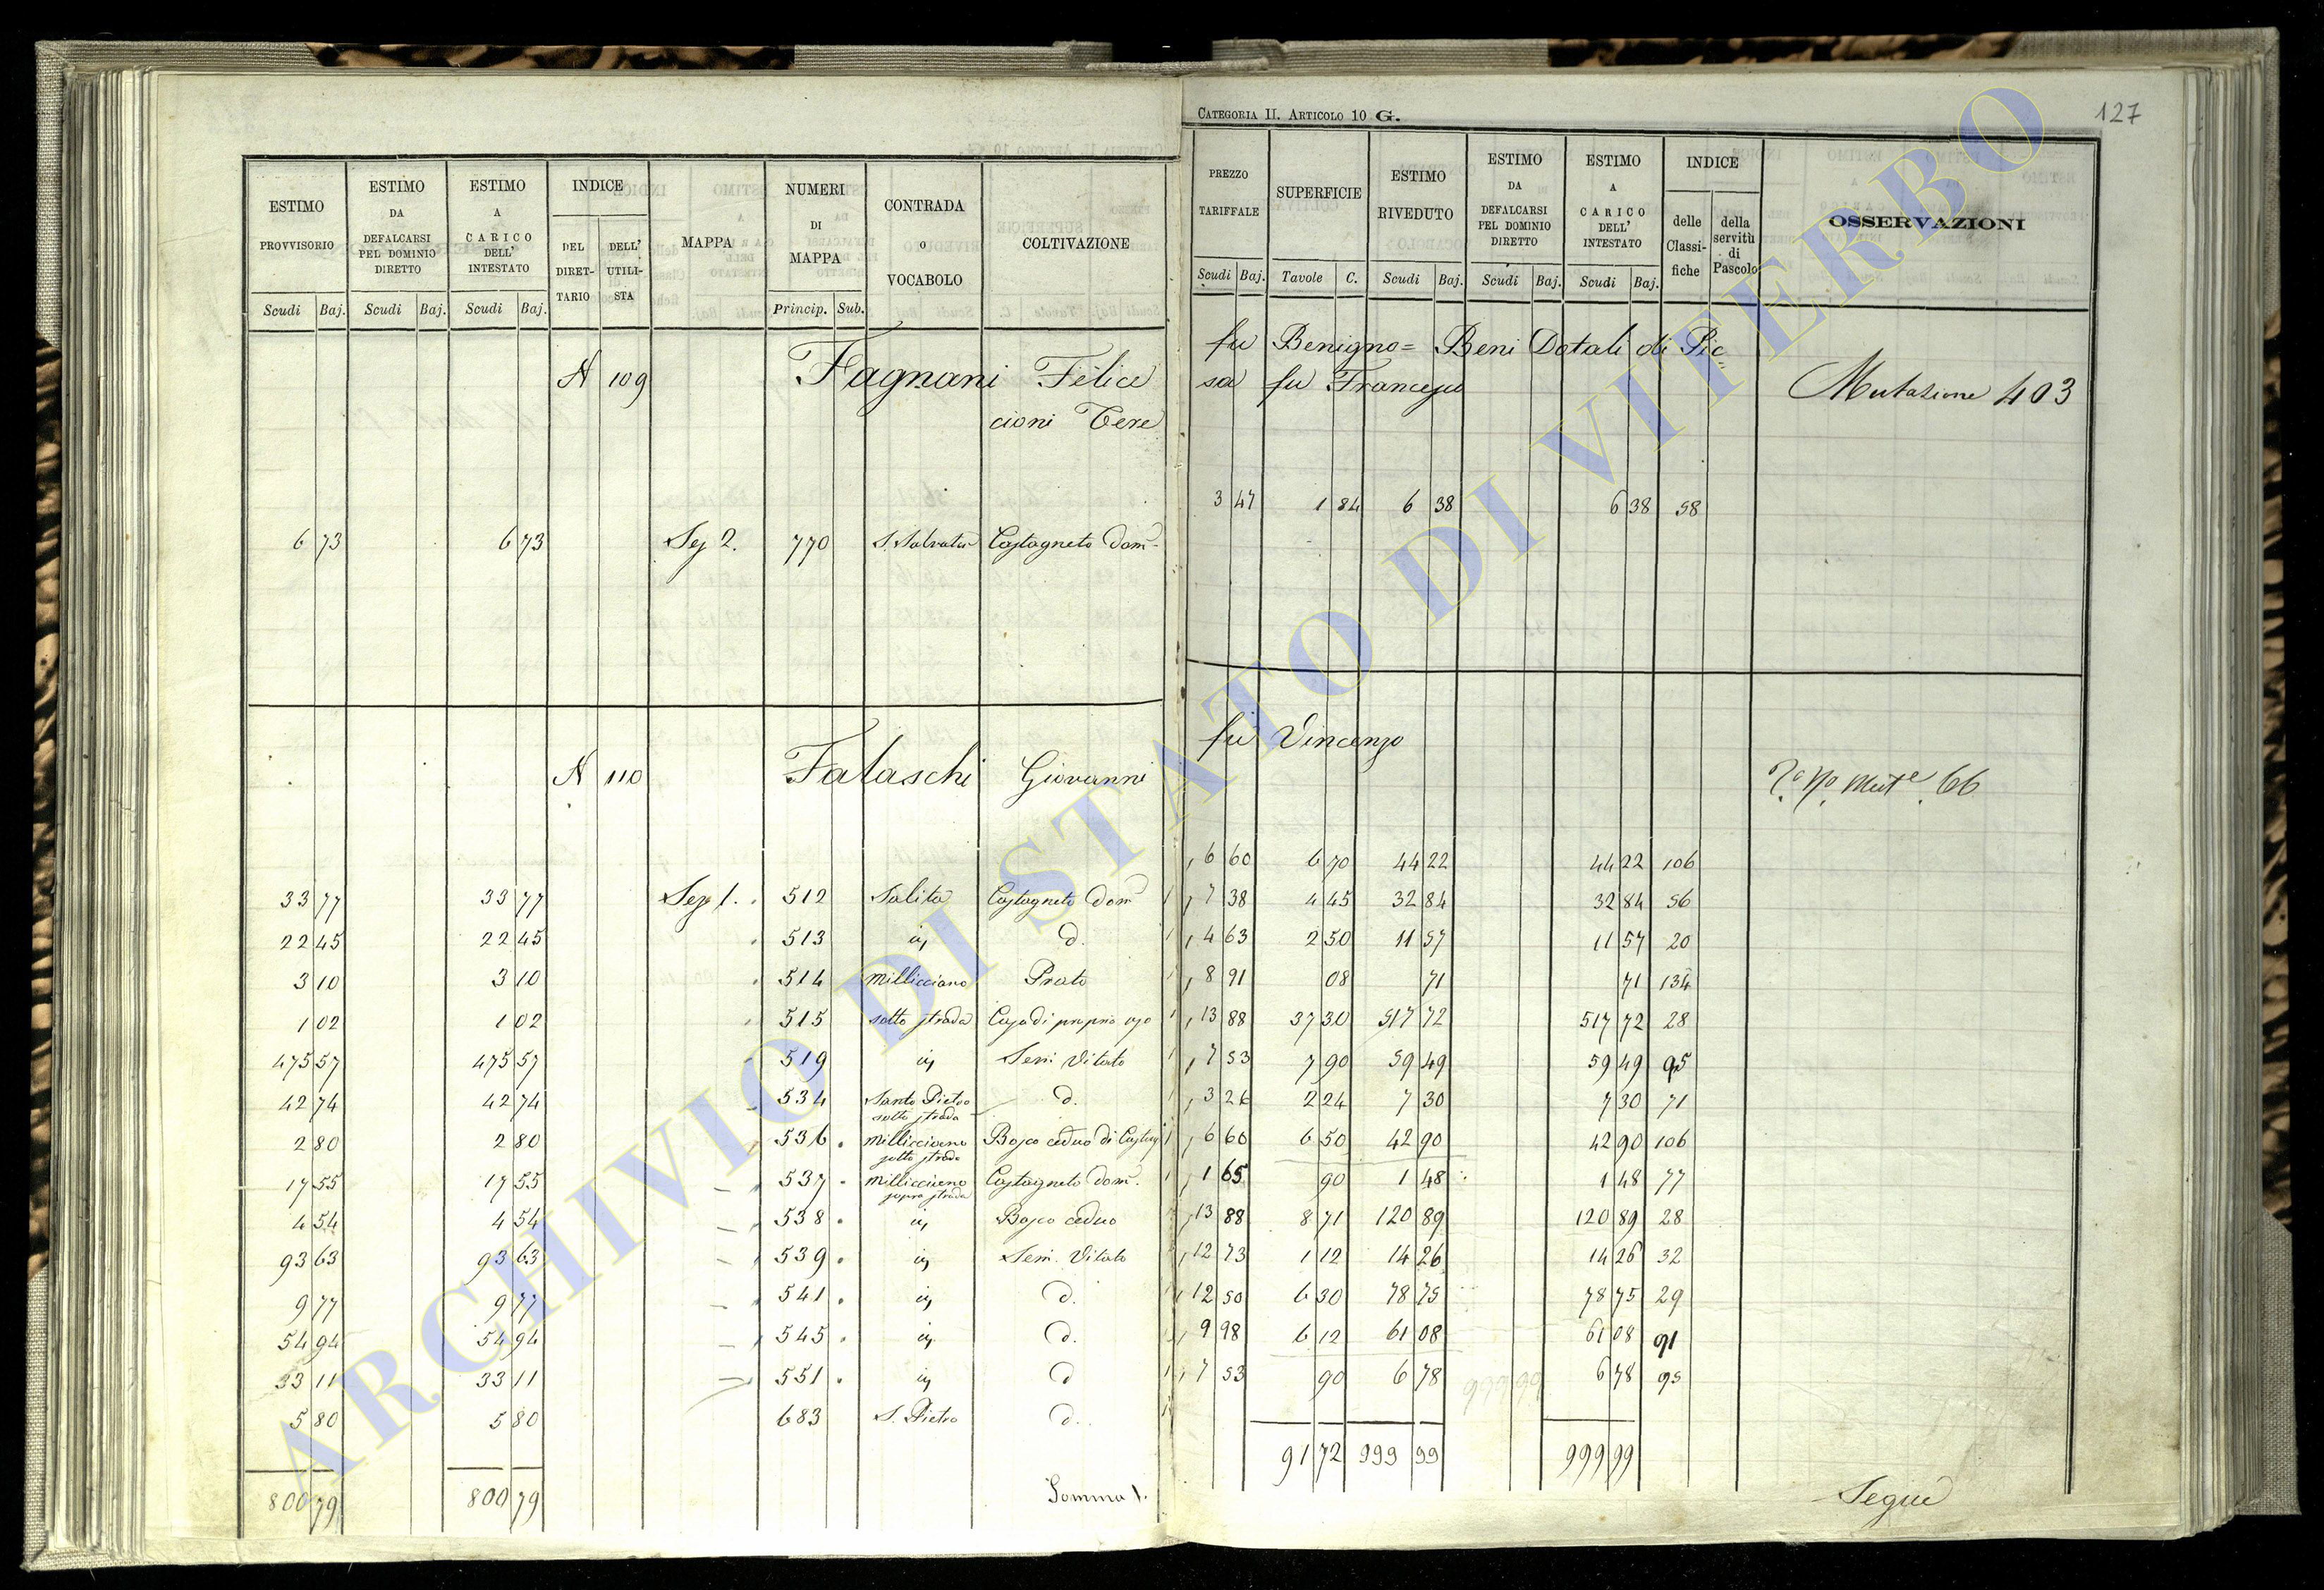 CATEGORIA II. ARTICOLO 10 G.
127
ESTIMO PROVVISORIO
ESTIMO DA DEFALCARSI PEL DOMINIO DIRETTO
ESTIMO A CARICO DELL' INTESTATO
INDICE
DEL DIRET-TARIO
DELL' UTILI-STA
MAPPA
NUMERI DI MAPPA
CONTRADA O VOCABOLO
COLTIVAZIONE
Scudi Baj. Scudi Baj. Scudi Baj. Princip. Sub.
PREZZO TARIFFALE
SUPERFICIE
ESTIMO RIVEDUTO
ESTIMO DA DEFALCARSI PEL DOMINIO DIRETTO
ESTIMO A CARICO DELL' INTESTATO
INDICE
delle Classi-fiche
della servitù di Pascolo
OSSERVAZIONI
Scudi Baj. Tavole C. Scudi Baj. Scudi Baj. Scudi Baj.
N 109 Fagnani Felice fu Benigno = Beni Dotali di Pic=
cioni Tere sa fu Francesco Mutazione 403
6 73 6 73 Sez 2. 770 S. Salvator Castagneto dom 3 47 1 84 6 38 6 38 58
N 110 Falaschi Giovanni fu Vincenzo
Mut.e 66
33 77 33 77 Sez 1. 512 Salita Castagneto dom 6 60 6 70 44 22 44 22 106
22 45 22 45 513 d. 7 38 4 45 32 84 32 84 56
3 10 3 10 514 Millicciano Prato 4 63 2 50 11 57 11 57 20
1 02 1 02 515 sotto strada Casa di proprio uso 8 91 08 71 71 134
475 57 475 57 519 Sem. Vitato 13 88 37 30 517 72 517 72 28
42 74 42 74 534 Santo Pietro sotto strada d. 7 53 7 90 59 49 59 49 95
2 80 2 80 536 Millicciano sotto strada Bosco ceduo di Castag 3 26 2 24 7 30 7 30 71
17 55 17 55 537 Millicciano sopra strada Castagneto dom. 6 60 6 50 42 90 42 90 106
4 54 4 54 538 Bosco ceduo 1 65 90 1 48 1 48 77
93 63 93 63 539 Sem. Vitato 13 88 8 71 120 89 120 89 28
9 77 9 77 541 d. 12 73 1 12 14 26 14 26 32
54 94 54 94 545 d. 12 50 6 30 78 75 78 75 29
33 11 33 11 551 d 9 98 6 12 61 08 61 08 91
5 80 5 80 683 S. Pietro d. 7 53 90 6 78 6 78 95
800 79 800 79 Somma 1. 91 72 999 99 999 99
Segue
ARCHIVIO DI STATO DI VITERBO